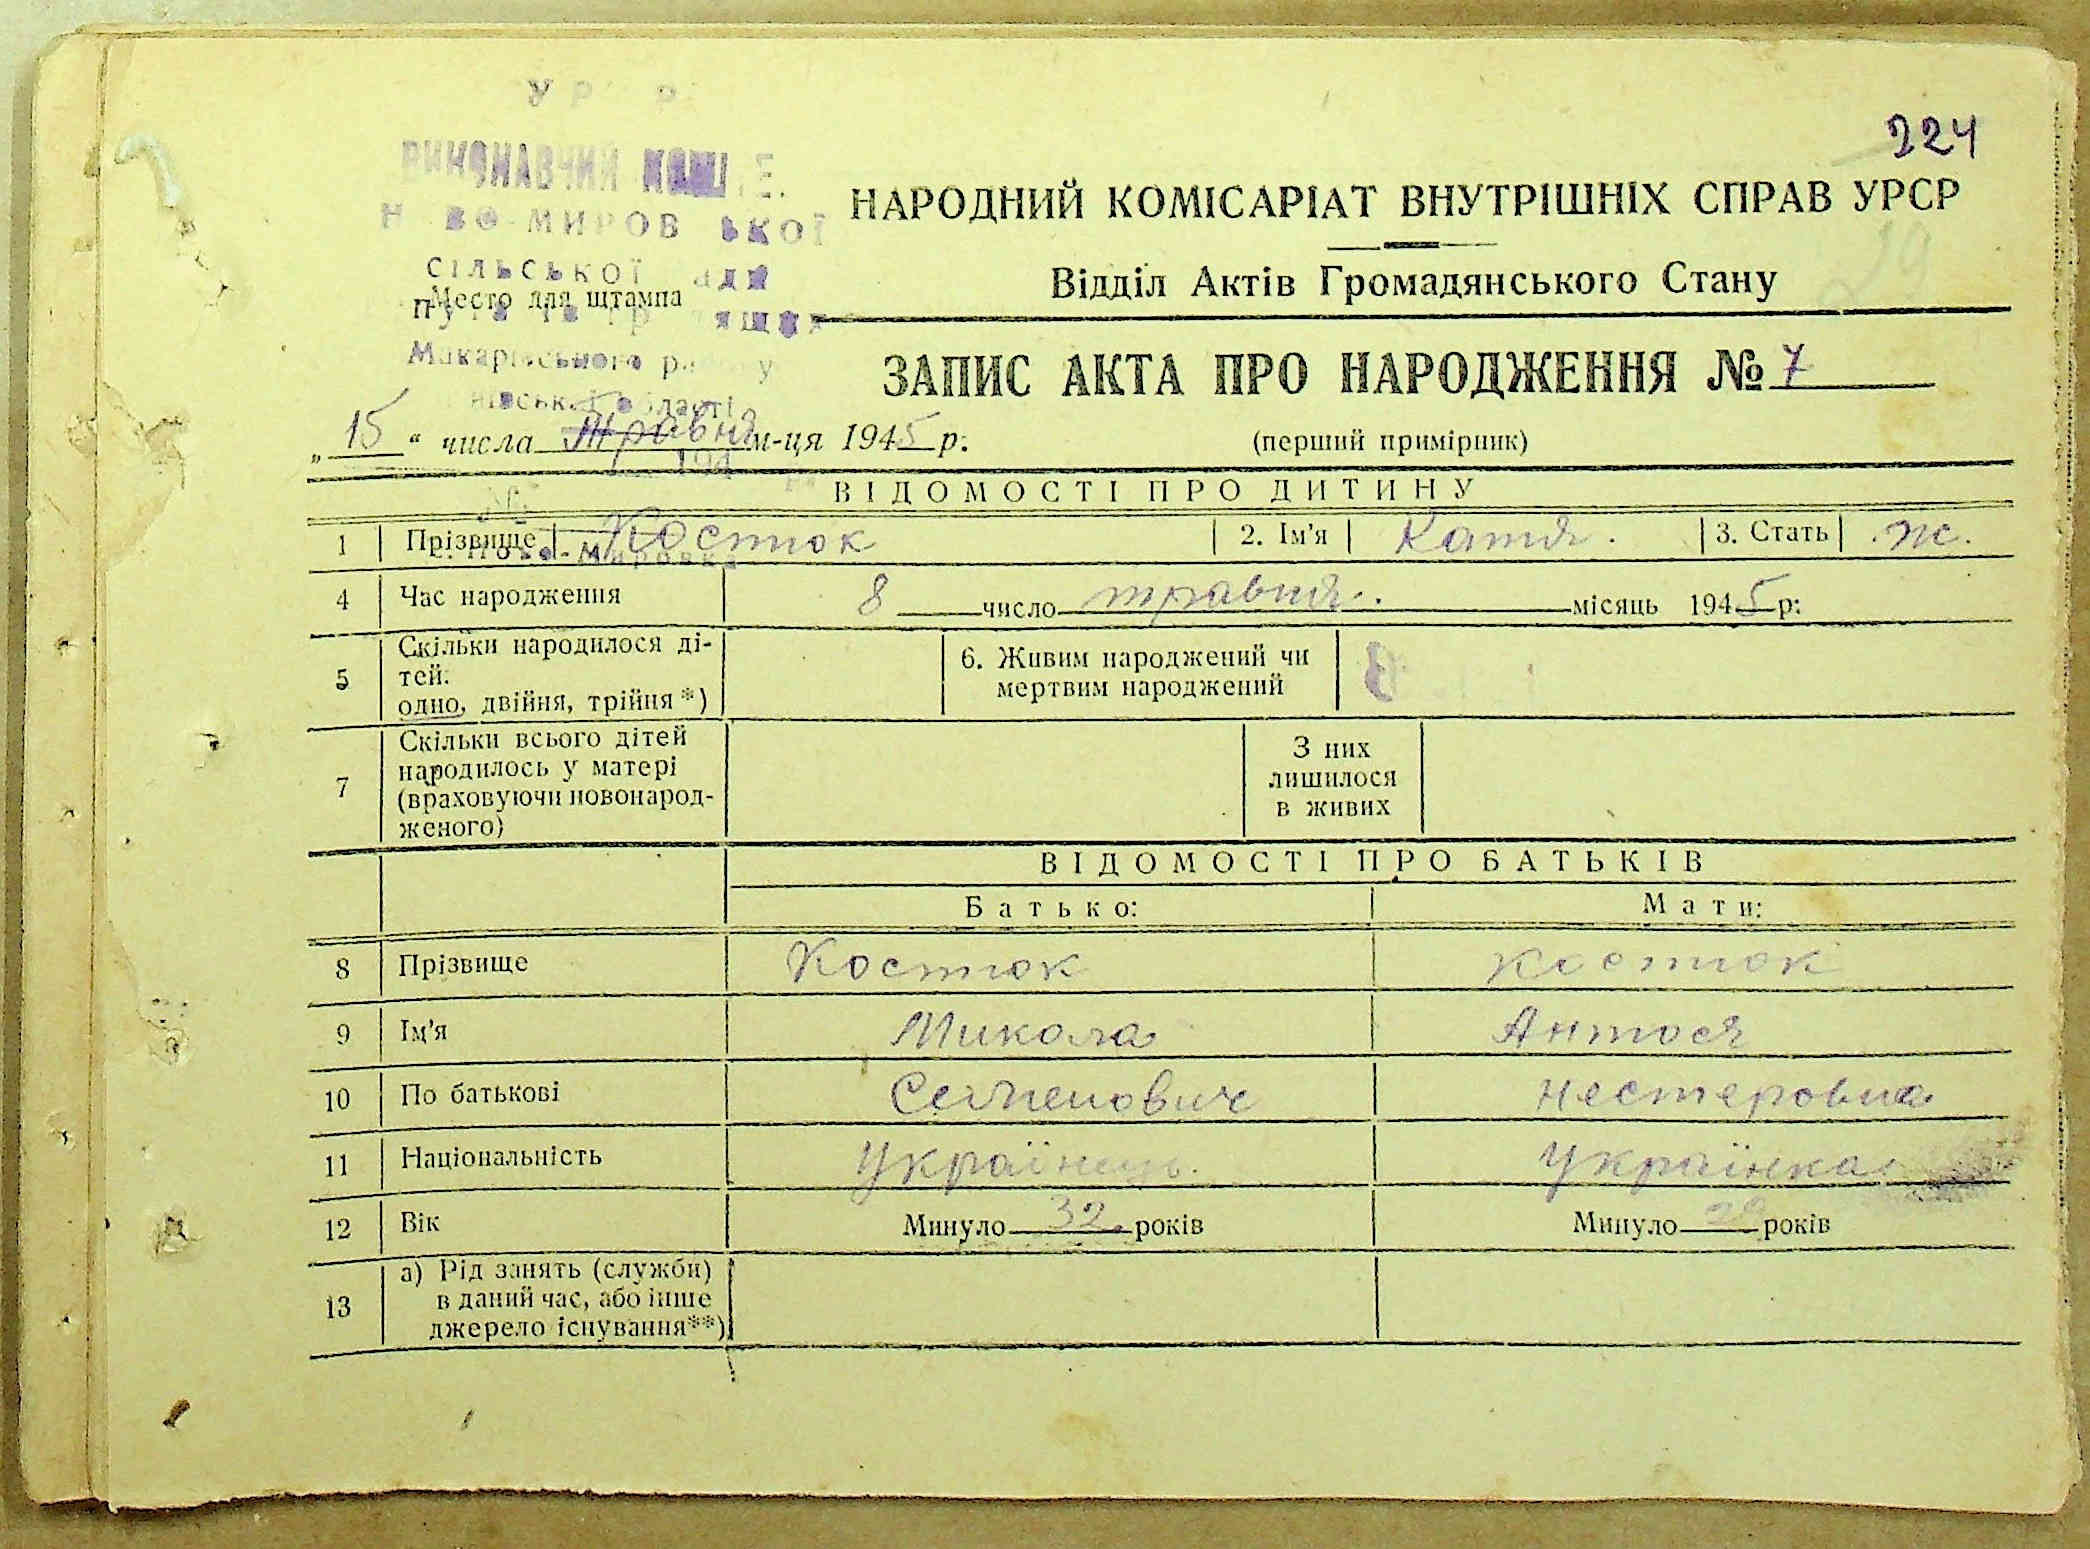 224
НАРОДНИЙ КОМІСАРІАТ ВНУТРІШНІХ СПРАВ УРСР
29
Відділ Актів Громадянського Стану
ВИКОНАВЧИЙ
СІЛЬСЬКОЇ
Место для штампа
Макарівського
ЗАПИС АКТА ПРО НАРОДЖЕННЯ № 7
„15“ числа Травня м-ця 1945 р.
(перший примірник)
ВІДОМОСТІ ПРО ДИТИНУ
1 Прізвище Костюк 2. Ім'я Катя. 3. Стать ж.
4 Час народження 8 число травня. місяць 1945 р:
5 Скільки народилося ді-
тей:
одно, двійня, трійня*)
6. Живим народжений чи
мертвим народжений
7 Скільки всього дітей
народилось у матері
(враховуючи новонарод-
женого)
З них
лишилося
в живих
ВІДОМОСТІ ПРО БАТЬКІВ
Батько: Мати:
8 Прізвище Костюк Костюк
9 Ім'я Микола Антося
10 По батькові Семенович Нестеровна
11 Національність Українець. Українка
12 Вік Минуло 32 років Минуло років
13 а) Рід занять (служби)
в даний час, або інше
джерело існування**)